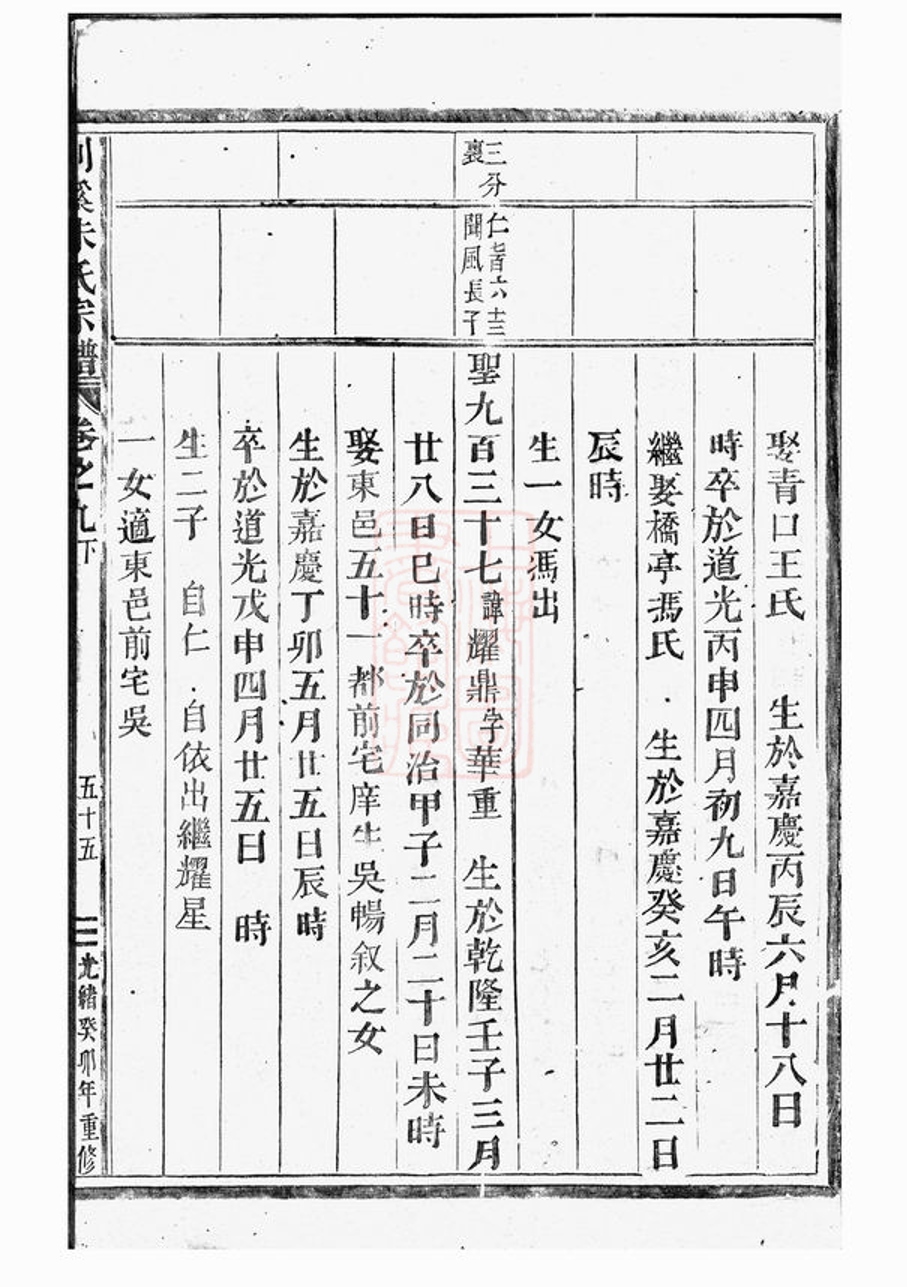 娶青口王氏　生於嘉慶丙辰六月十八日
時卒於道光丙申四月初九日午時
繼娶橋亭馮氏　生於嘉慶癸亥二月廿二日
辰時
生一女馮出
三分
裏
仁耆六十三
聞風長子
聖九百三十七諱耀鼎字華重　生於乾隆壬子三月
廿八日巳時卒於同治甲子二月二十日未時
娶東邑五十一都前宅庠生吳暢叙之女
生於嘉慶丁卯五月廿五日辰時
卒於道光戊申四月廿五日　時
生二子　自仁　自依出繼耀星
一女適東邑前宅吳
溪朱氏宗譜
卷之九下
五十五
光緒癸卯年重修